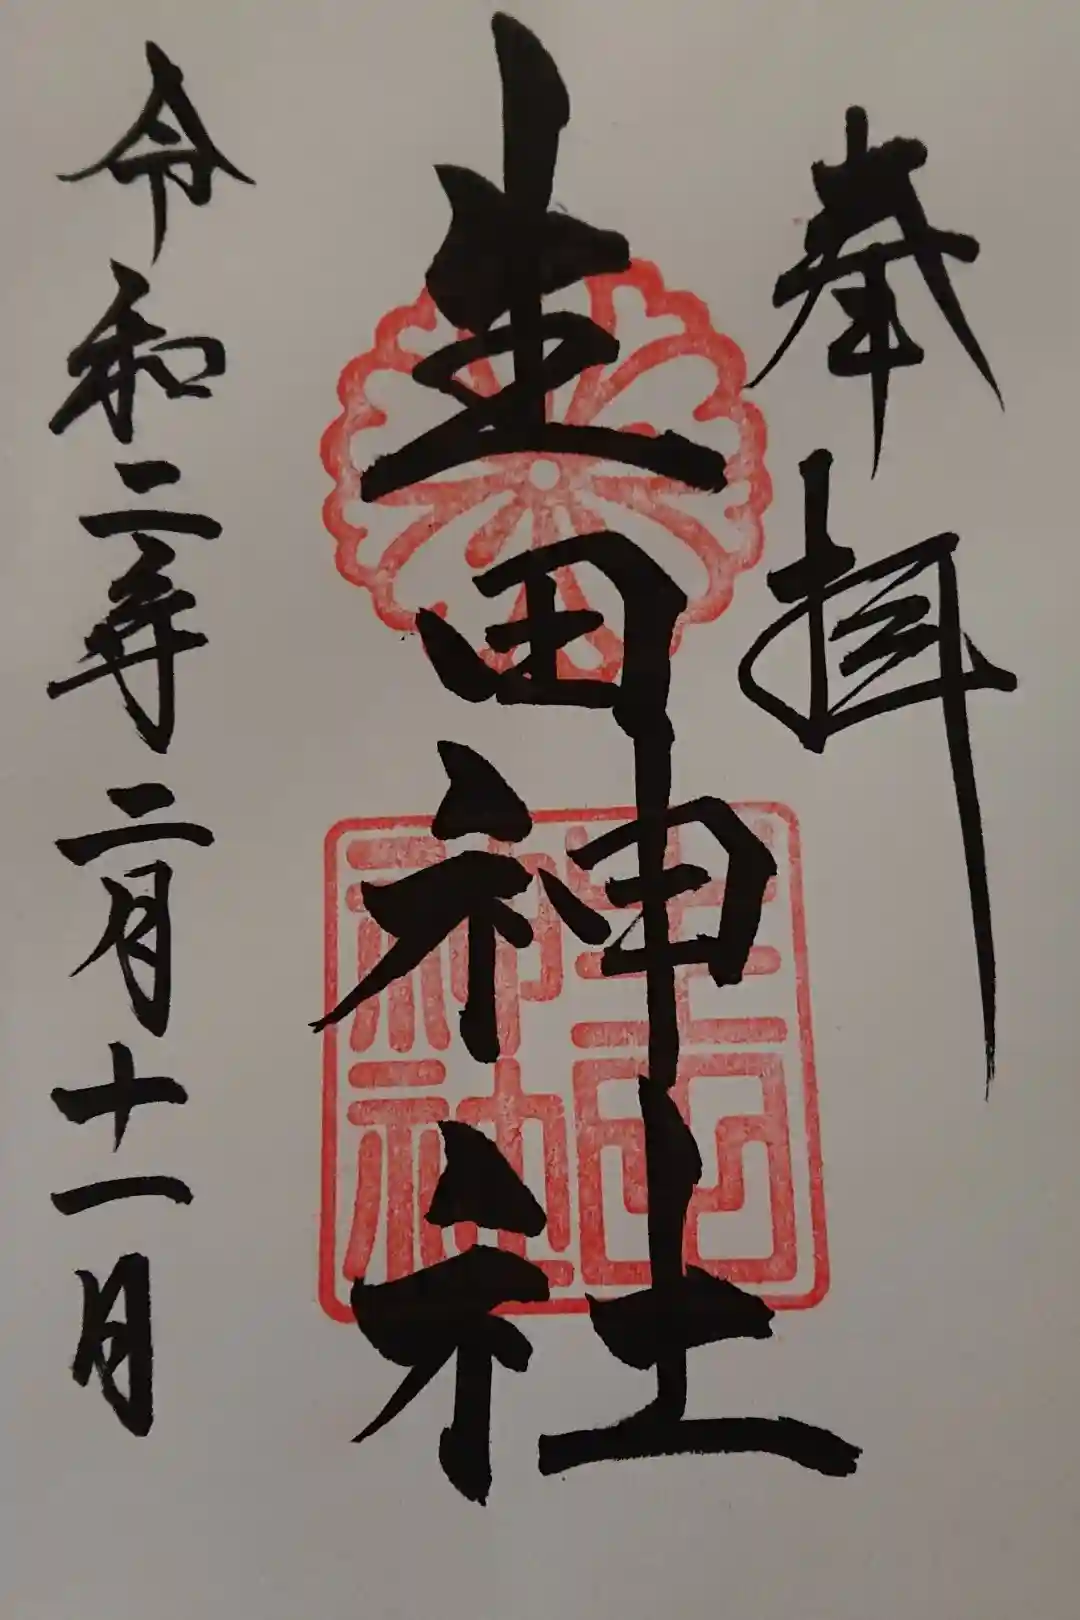 奉拝
生田神社
生田神社
令和二年二月十一日